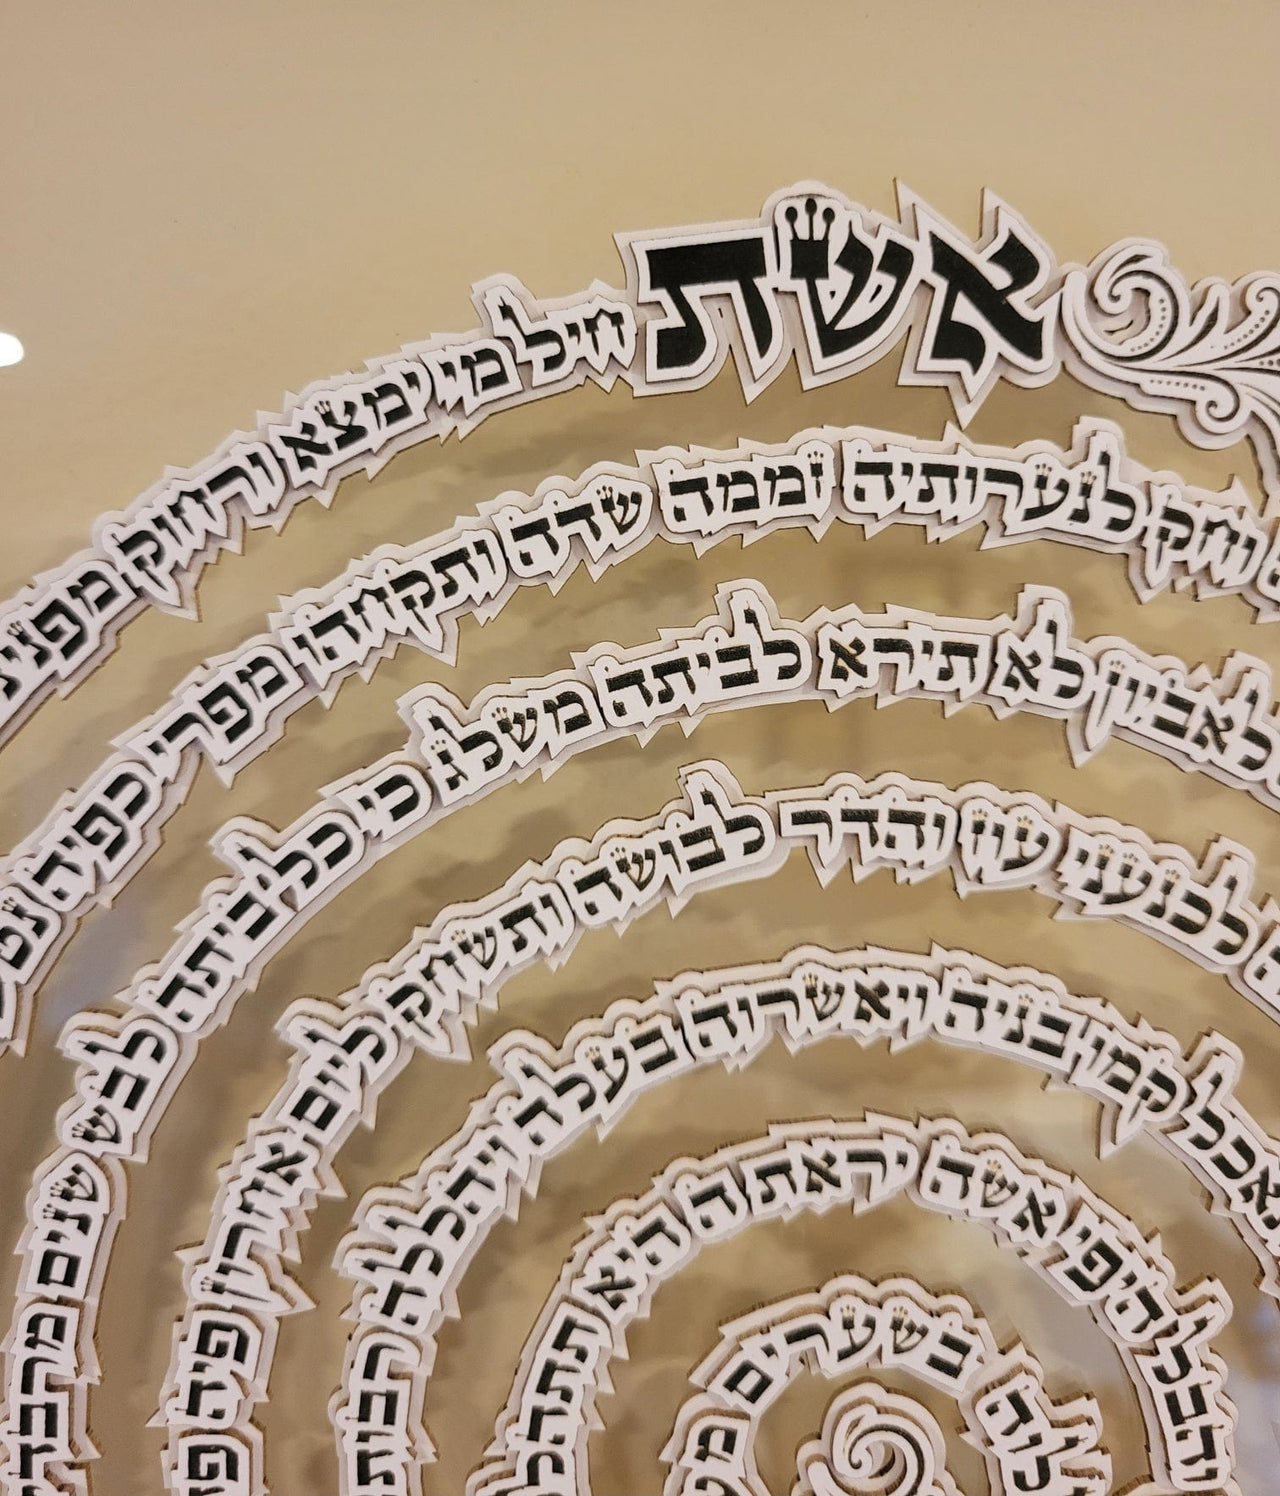 אשת חיל מי ימצא ורחוק מפני
וחק לנערותיה זממה שדה ותקחהו מפרי כפיה
לאביון לא תירא לביתה משלג כי כל ביתה לבש שנים מרבד
לכנעני עוז והדר לבושה ותשחק ליום אחרון פיה
קמו בניה ויאשרוה בעלה ויהללה רבות
והבל היפי אשה יראת ה היא תתהלל
בשערים